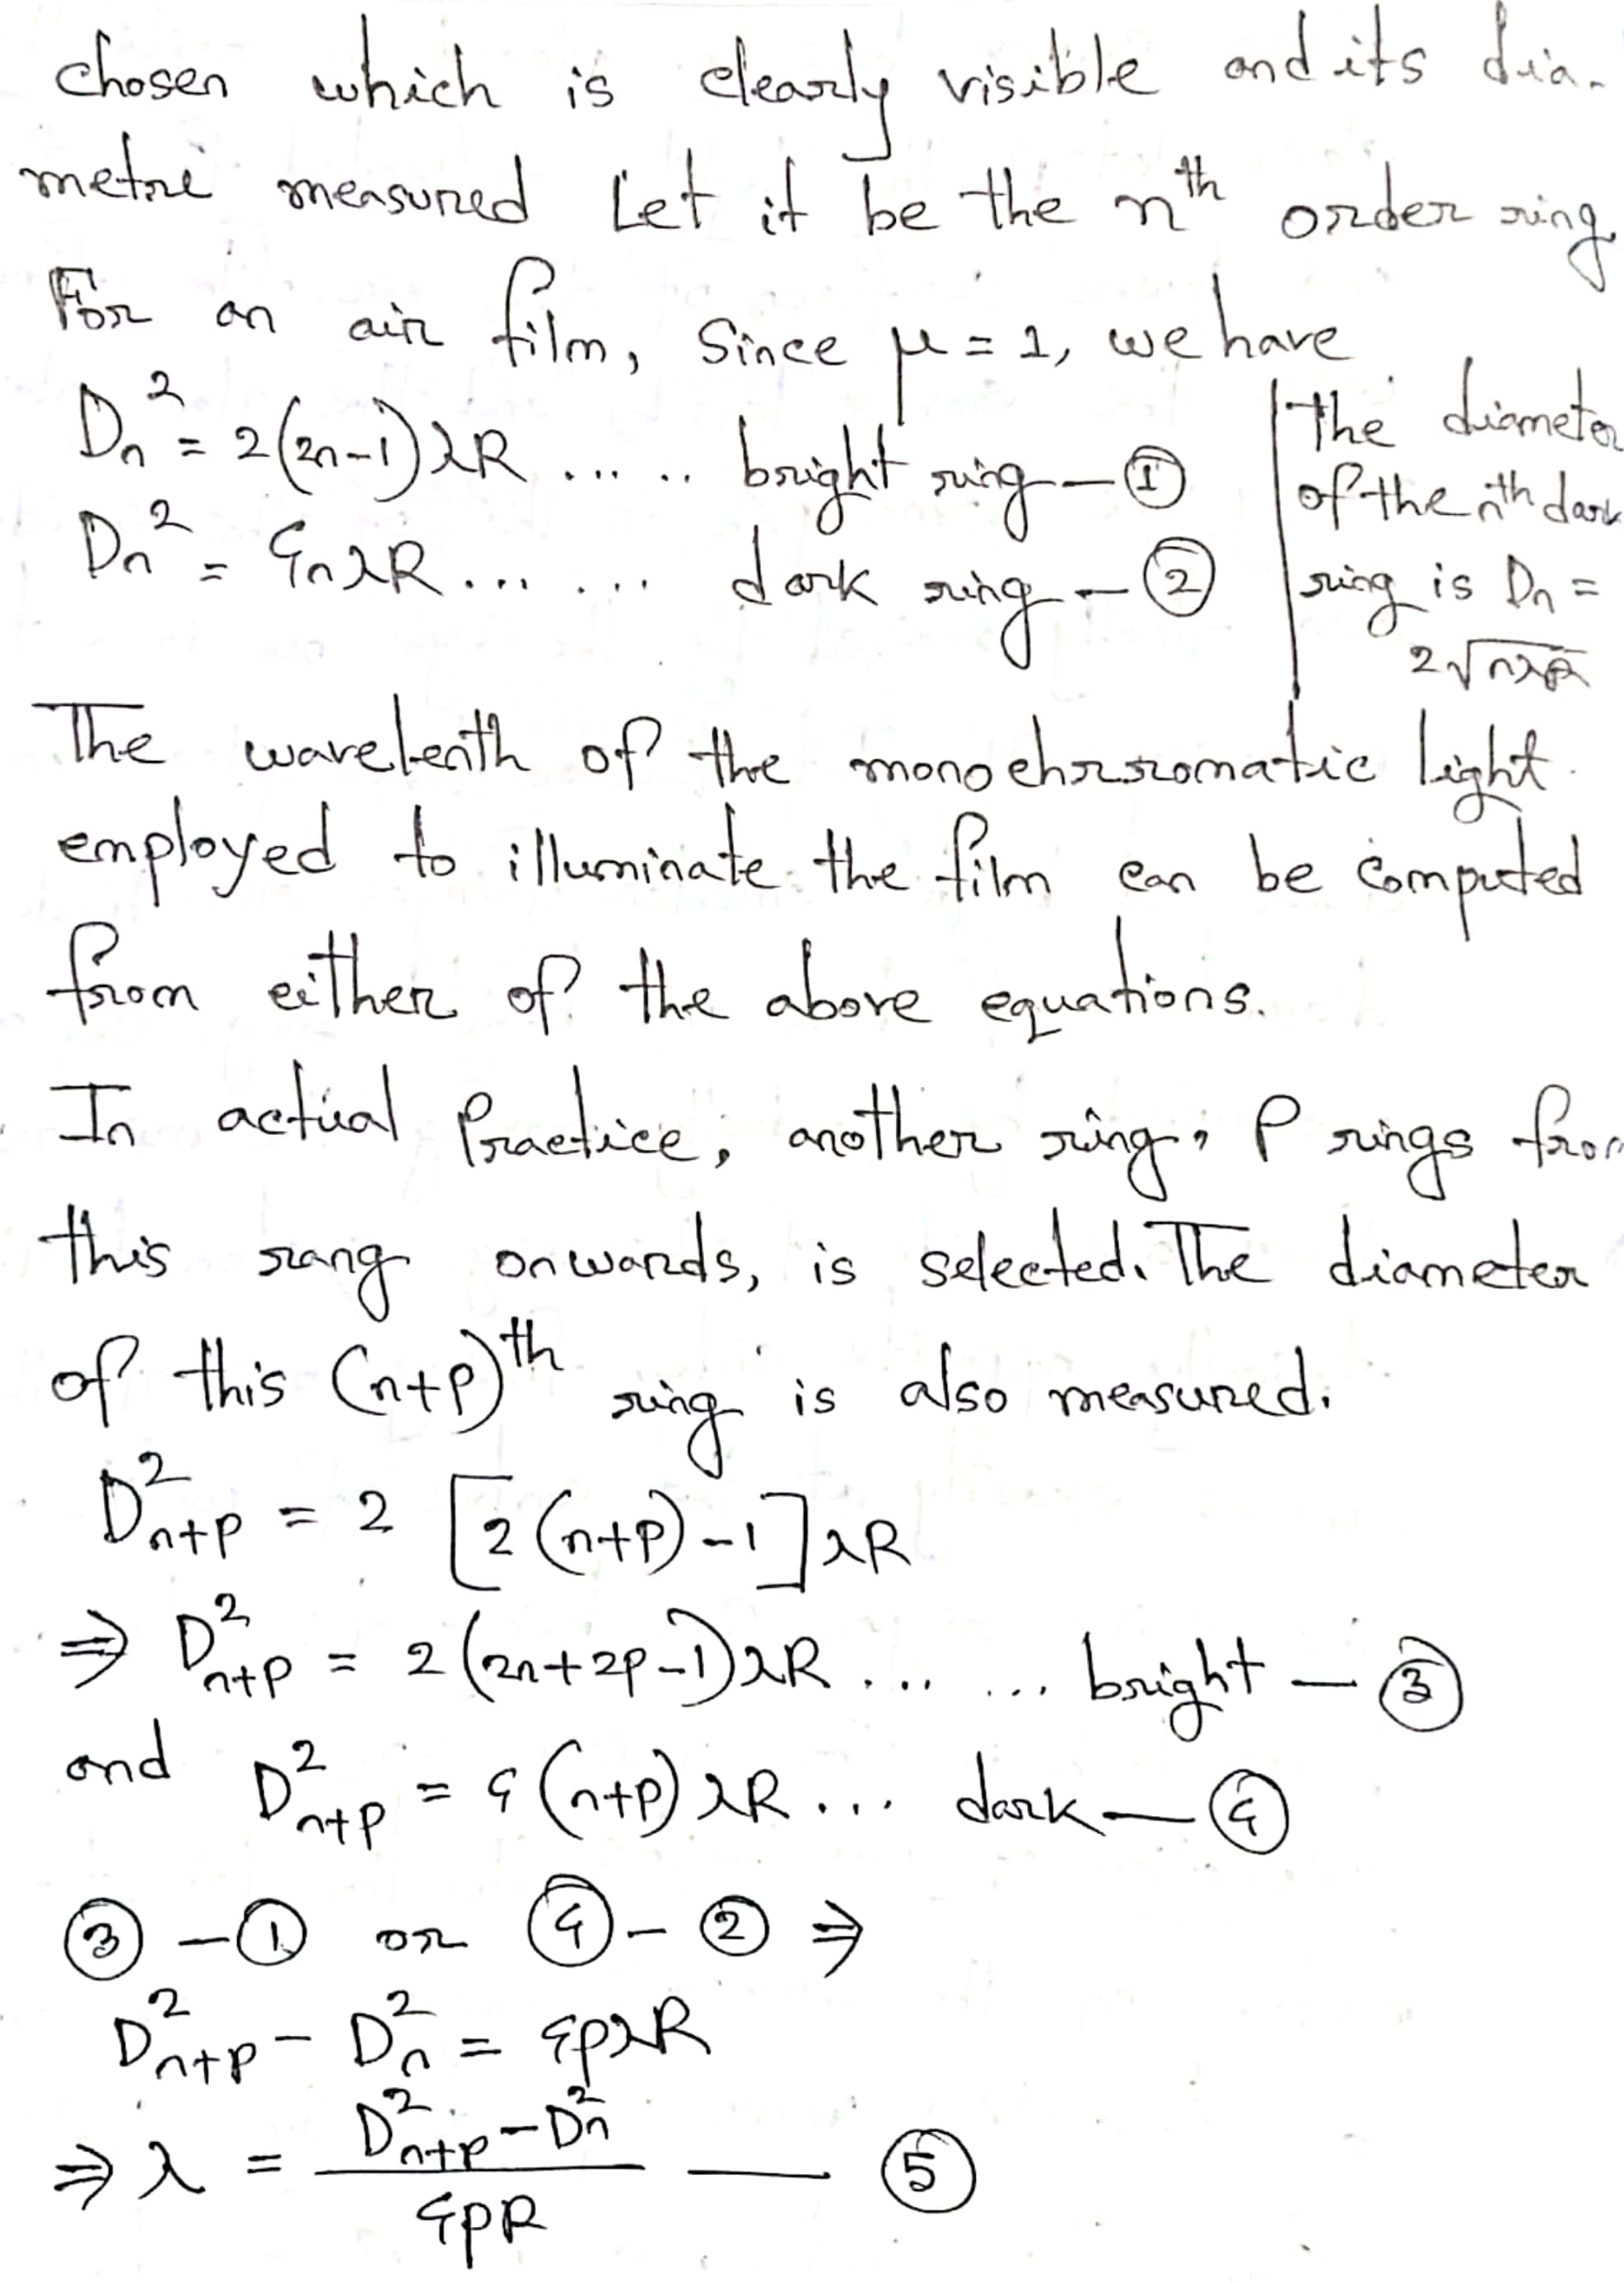 chosen which is clearly visible and its dia-
metre measured Let it be the nth order ring
For an air film, Since μ = 1, we have
Dn² = 2(2n-1)λR ...... bright ring - ①
Dn² = 4nλR ...... dark ring - ②
The diameter
of the nth dark
ring is Dn =
2√nλR
The wavelenth of the monochrromatic light
employed to illuminate the film can be computed
from either of the above equations.
In actual Practice, another ring, P rings from
this rang onwards, is selected. The diameter
of this (n+p)th ring is also measured.
D²n+p = 2 [2(n+p)-1]λR
⇒ D²n+p = 2(2n+2p-1)λR ...... bright - ③
and D²n+p = 4(n+p)λR ... dark - ④
③ - ① or ④ - ② ⇒
D²n+p - D²n = 4pλR
⇒ λ = (D²n+p - D²n) / 4pR — ⑤